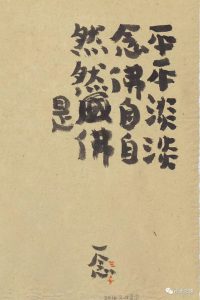 平平淡淡
念佛自自
然然成佛
是
一念